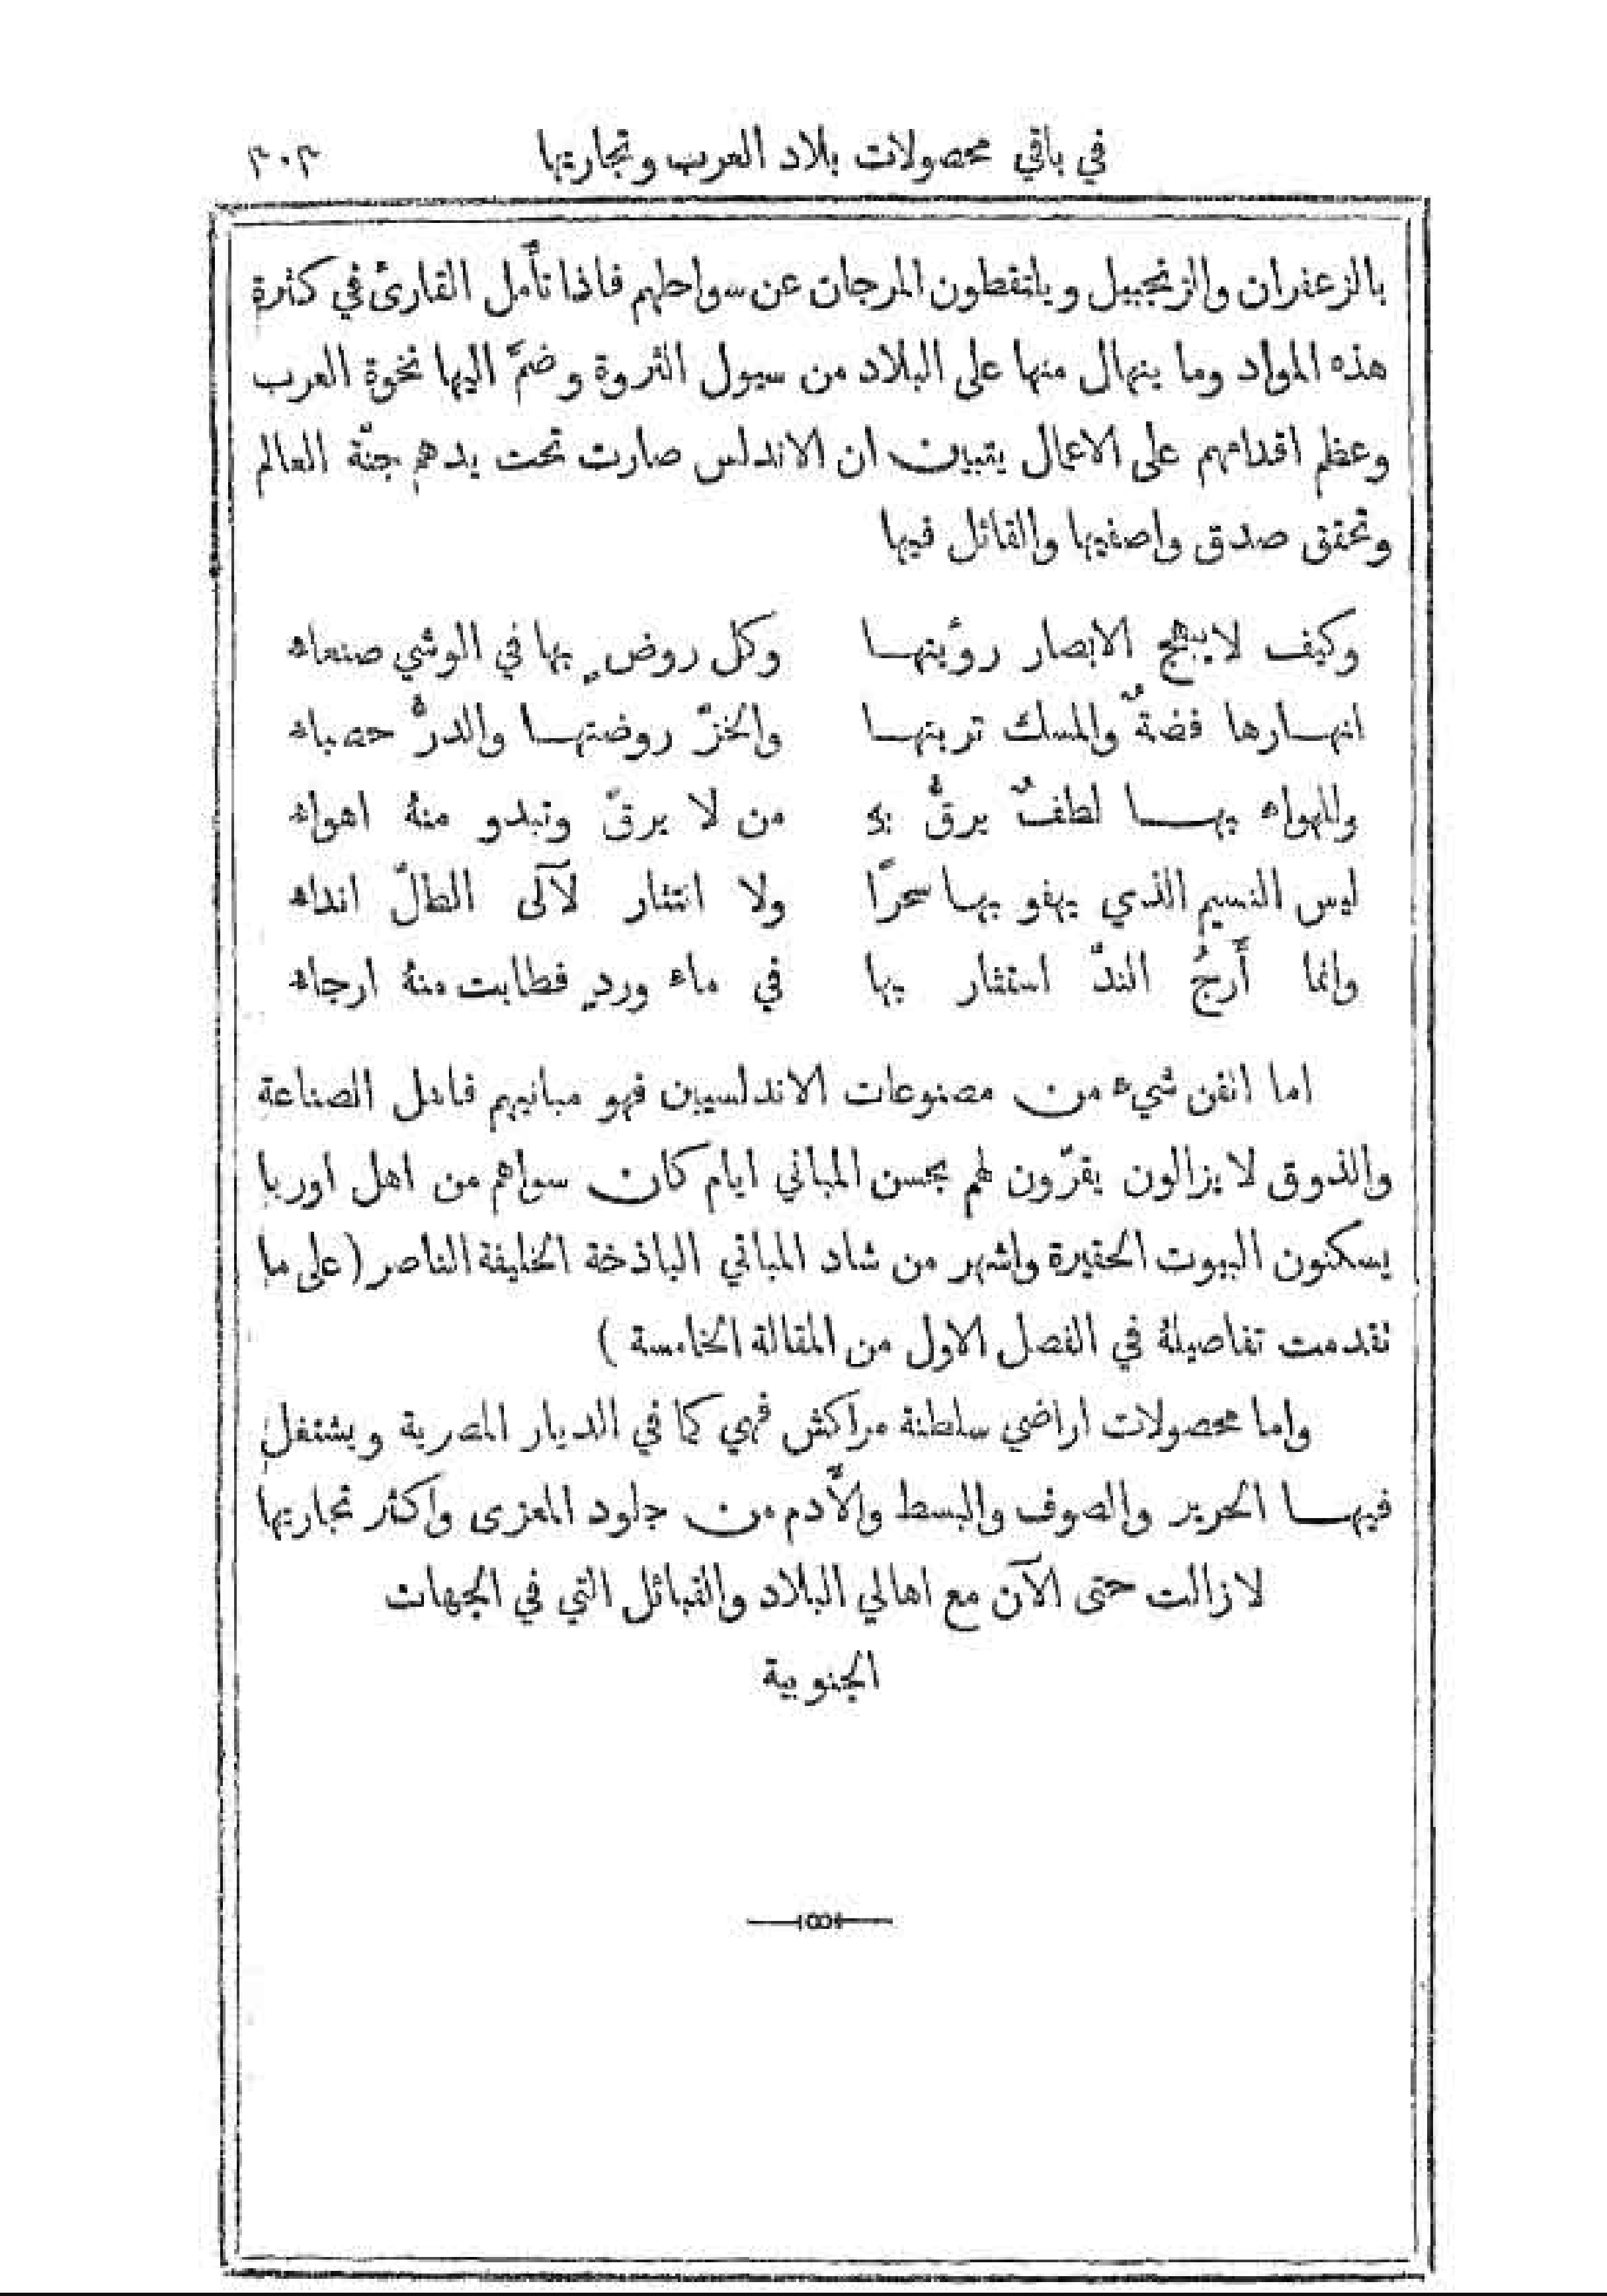 في باقي محصولات بلاد العرب وتجاريها ٣٠٣
بالزعفران والزنجبيل ويلتقطون المرجان عن سواحلهم فاذا تأَمل القارئ في كثرة
هذه المواد وما ينهال منها على البلاد من سيول الثروة وضمَّ اليها نخوة العرب
وعظم اقدامهم على الاعمال يتبين ان الاندلس صارت تحت يدهم جنّة العالم
وتحقق صدق واصفيها والقائل فيها
وكيف لا يبهج الابصار رؤيتهــا وكل روضٍ بها في الوشي صنعاء
انهــارها فضةٌ والمسك تربتهــا والخزّ روضتهــا والدرُّ حصباء
وللهواء بهــــا لطفٌ يرقُّ بهِ من لا يرقّ وتبدو منهُ اهواء
ليس النسيم الذي يهفو بهــا سحرًا ولا انتثار لآلى الطلّ انداء
وانما أَرجُ الندّ استثار بها في ماء وردٍ فطابت منهُ ارجاء
اما اتقن شيء من مصنوعات الاندلسيين فهو مبانيهم فاهل الصناعة
والذوق لا يزالون يقرّون لهم بحسن المباني ايام كان سواهم من اهل اوربا
يسكنون البيوت الحقيرة واشهر من شاد المباني الباذخة الخليفة الناصر (على ما
تقدمت تفاصيلهُ في الفصل الاول من المقالة الخامسة )
واما محصولات اراضي سلطنة مراكش فهي كما في الديار المصرية ويشتغل
فيهــا الحرير والصوف والبسط والأَدم من جلود المعزى واكثر تجاريها
لا زالت حتى الآن مع اهالي البلاد والقبائل التي في الجهات
الجنوبية